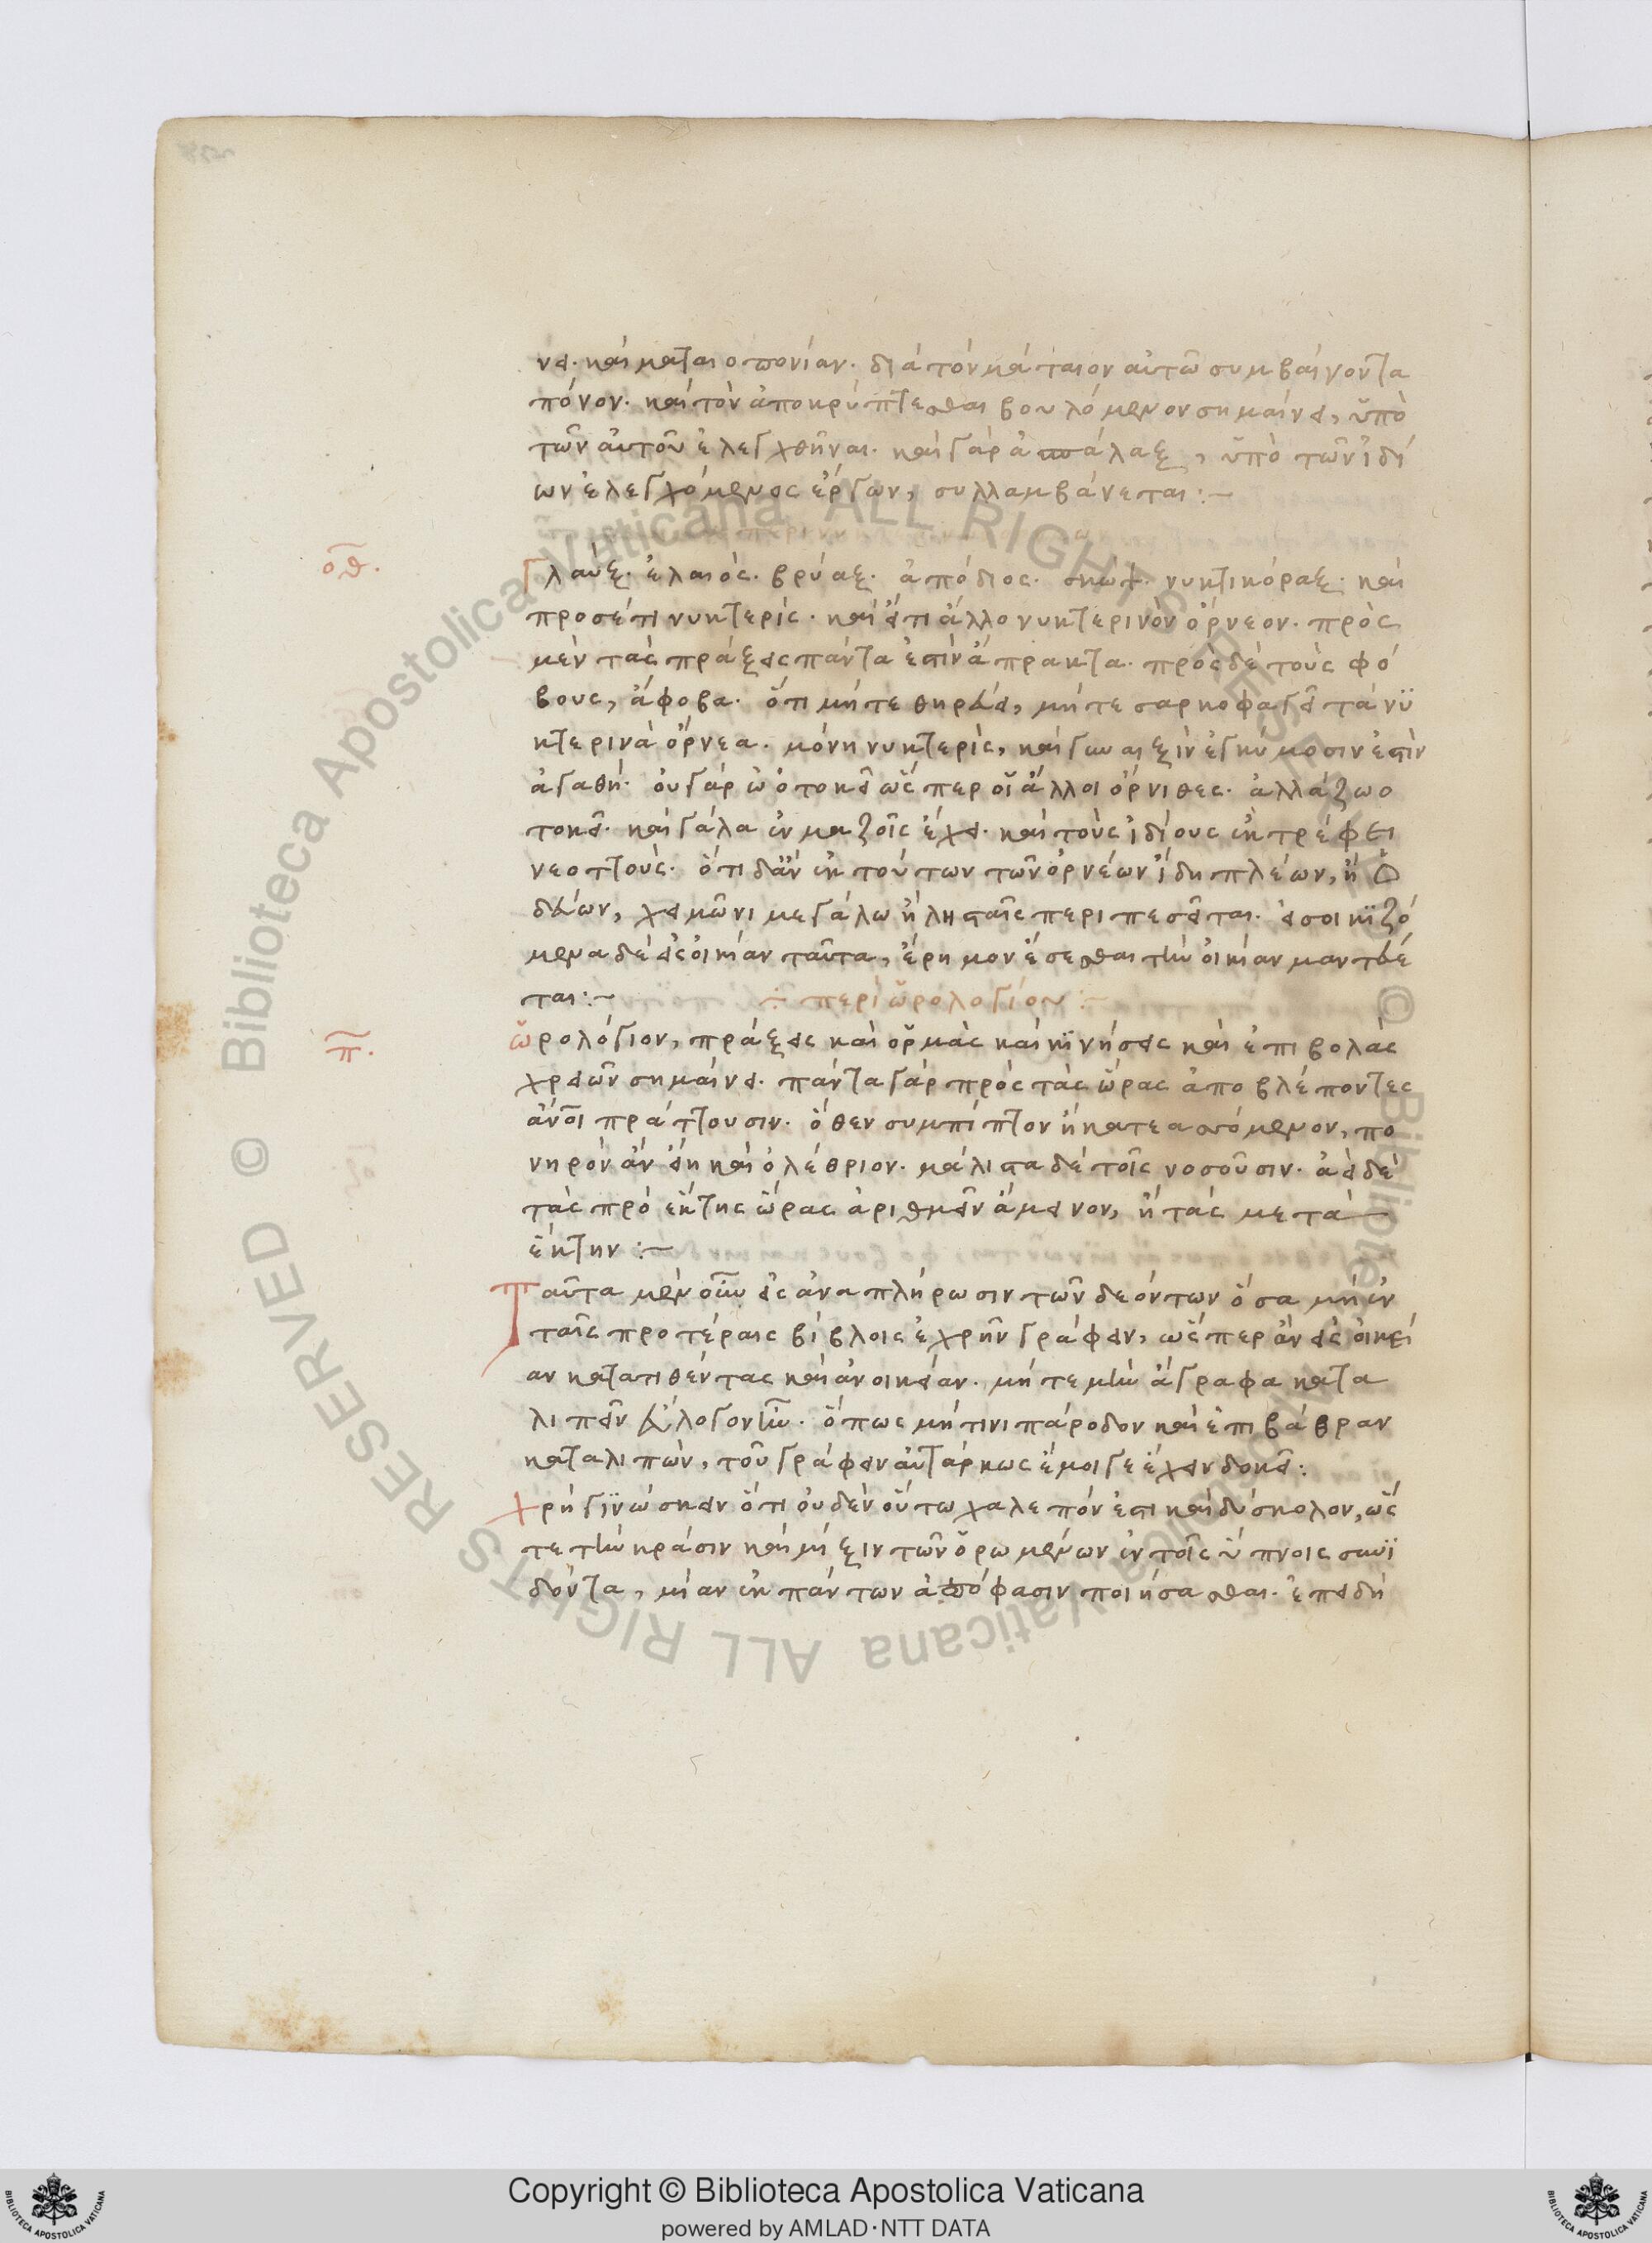 νει· καὶ ματαιοπονίαν· διὰ τὸν μάταιον αὐτῶ συμβαίνοντα
πόνον· καὶ τὸν ἀποκρύπτεσθαι βουλόμενον σημαίνει, ὑπὸ
τῶν αὐτοῦ ἐλεγχθῆναι· καὶ γὰρ ἀσπάλαξ, ὑπὸ τῶν ἰδί
ων ἐλεγχόμενος ἔργων, συλλαμβάνεται:~
οθ.
Γλαὺξ· ἐλαιὸς· βρύαξ· ἀπόδιος· σκὼψ· νυκτικόραξ· καὶ
προσέτι νυκτερὶς· καὶ εἴτι ἄλλο νυκτερινὸν ὄρνεον· πρὸς
μὲν τὰς πράξεις πάντα ἐστὶν ἄπρακτα· πρὸς δὲ τοὺς φό
βους, ἄφοβα· ὅτι μήτε θηρεύει, μήτε σαρκοφαγεῖ τὰ νϋ
κτερινὰ ὄρνεα· μόνη νυκτερὶς, καὶ γυναιξὶν ἐγκύμοσιν ἐστὶν
ἀγαθή· οὐ γὰρ ὠοτοκεῖ ὥσπερ οἱ ἄλλοι ὄρνιθες· ἀλλὰ ζωο
τοκεῖ· καὶ γάλα ἐν μαζοῖς ἔχει· καὶ τοὺς ἰδίους ἐκτρέφει
νεοττούς· ὅτι δἂν ἐκ τούτων τῶν ὀρνέων ἴδη πλέων, ἢ ὁ
δεύων, χειμῶνι μεγάλω ἢ λησταῖς περιπεσεῖται· εἰσοικϊζό
μενα δὲ εἰς οἰκίαν ταῦτα, ἔρημον ἔσεσθαι τὴν οἰκίαν μαντεύε
ται:~ ÷ περὶ ὡρολογίου :~
π.
ὡρολόγιον, πράξεις καὶ ὁρμὰς καὶ κϊνήσεις καὶ ἐπιβολὰς
χρειῶν σημαίνει· πάντα γὰρ πρὸς τὰς ὥρας ἀποβλέποντες
ἄνοι πράττουσιν· ὅθεν συμπίπτον ἢ κατεασσόμενον, πο
νηρὸν ἂν εἴη καὶ ὀλέθριον· μάλιστα δὲ τοῖς νοσοῦσιν· ἀεὶ δὲ
τὰς πρὸ ἕκτης ὥρας ἀριθμεῖν ἄμεινον, ἢ τὰς μετὰ
ἕκτην :~
Ταῦτα μὲν οὖν εἰς ἀναπλήρωσιν τῶν δεόντων ὅσα μὴ ἐν
ταῖς προτέραις βίβλοις ἐχρῆν γράφειν, ὥσπερ ἂν εἰς οἰκεί
αν κατατιθέντας καὶ ἀνοικείαν· μήτε μὴν ἄγραφα κατα
λιπεῖν εὔλογον ἦν· ὅπως μή τινι πάροδον καὶ ἐπιβάθραν
καταλιπών, τοῦ γράφειν αὐτάρκως ἔμοιγε ἔχειν δοκεῖ:
χρὴ γϊνώσκειν ὅτι οὐδὲν οὕτω χαλεπόν ἐστι καὶ δύσκολον, ὥς
τε τὴν κράσιν καὶ μίξιν τῶν ὁρωμένων ἐν τοῖς ὕπνοις συνϊ
δόντα, μίαν ἐκ πάντων ἀπόφασιν ποιήσασθαι· ἐπειδὴ
Copyright © Biblioteca Apostolica Vaticana
powered by AMLAD·NTT DATA